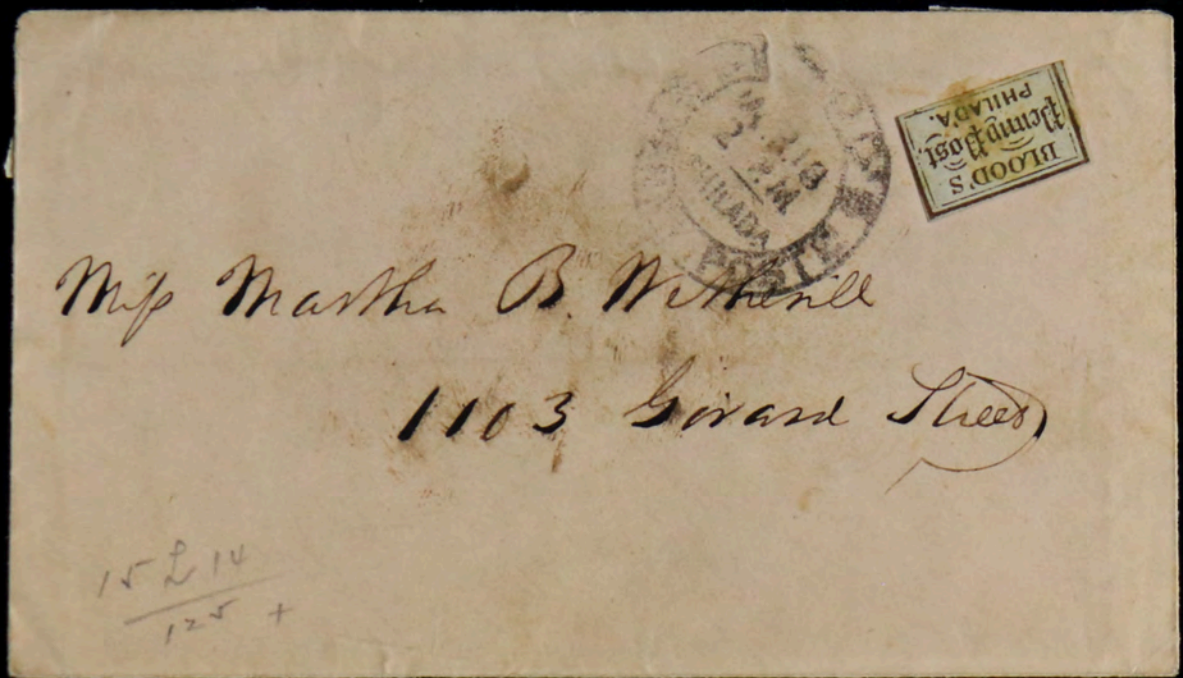 BLOOD'S
Penny Post.
PHILAD'A.
2 P.M
PHILADA
Miss Martha B. Wetherill
1103 Girard Street
15 £ 14
125 +